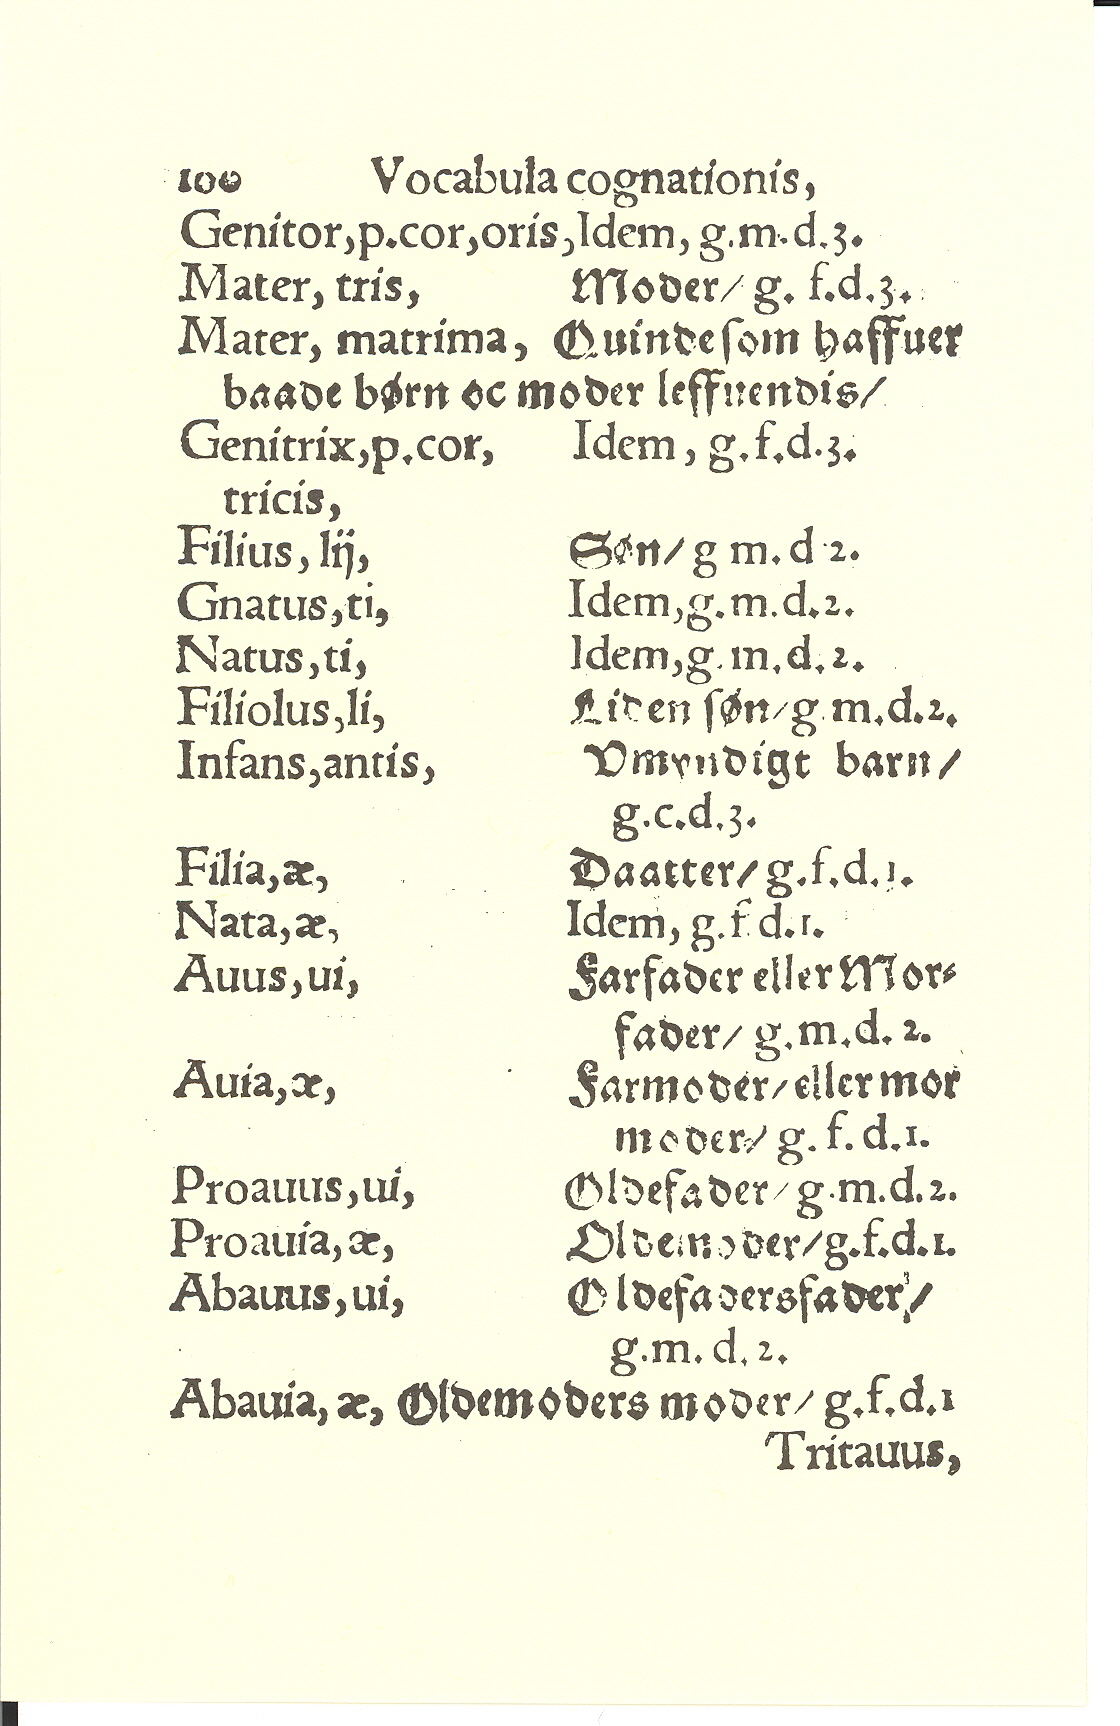 100 Vocabula cognationis,
Genitor,p.cor,oris,Idem, g.m.d.3.
Mater, tris, Moder/ g. f.d.3.
Mater, matrima, Quinde ſom haffuer
baade børn oc moder leffuendis/
Genitrix,p.cor, Idem, g.f.d.3.
tricis,
Filius, lij, Søn/ g m. d 2.
Gnatus,ti, Idem,g.m.d.2.
Natus,ti, Idem,g.m.d.2.
Filiolus,li, Liden ſøn/g m.d.2.
Infans,antis, Vmyndigt barn/
g.c.d.3.
Filia,æ, Daatter/ g.f.d.1.
Nata,æ, Idem, g.f d.1.
Auus,ui, Farfader eller Mor⸗
fader/ g.m.d. 2.
Auia,æ, Farmoder/ eller mor
moder/ g. f. d.1.
Proauus,ui, Oldefader/ g.m.d.2.
Proauia,æ, Oldemoder/g.f.d.1.
Abauus,ui, Oldefadersfader/
g.m. d. 2.
Abauia, æ, Oldemoders moder/ g.f.d.1
Tritauus,